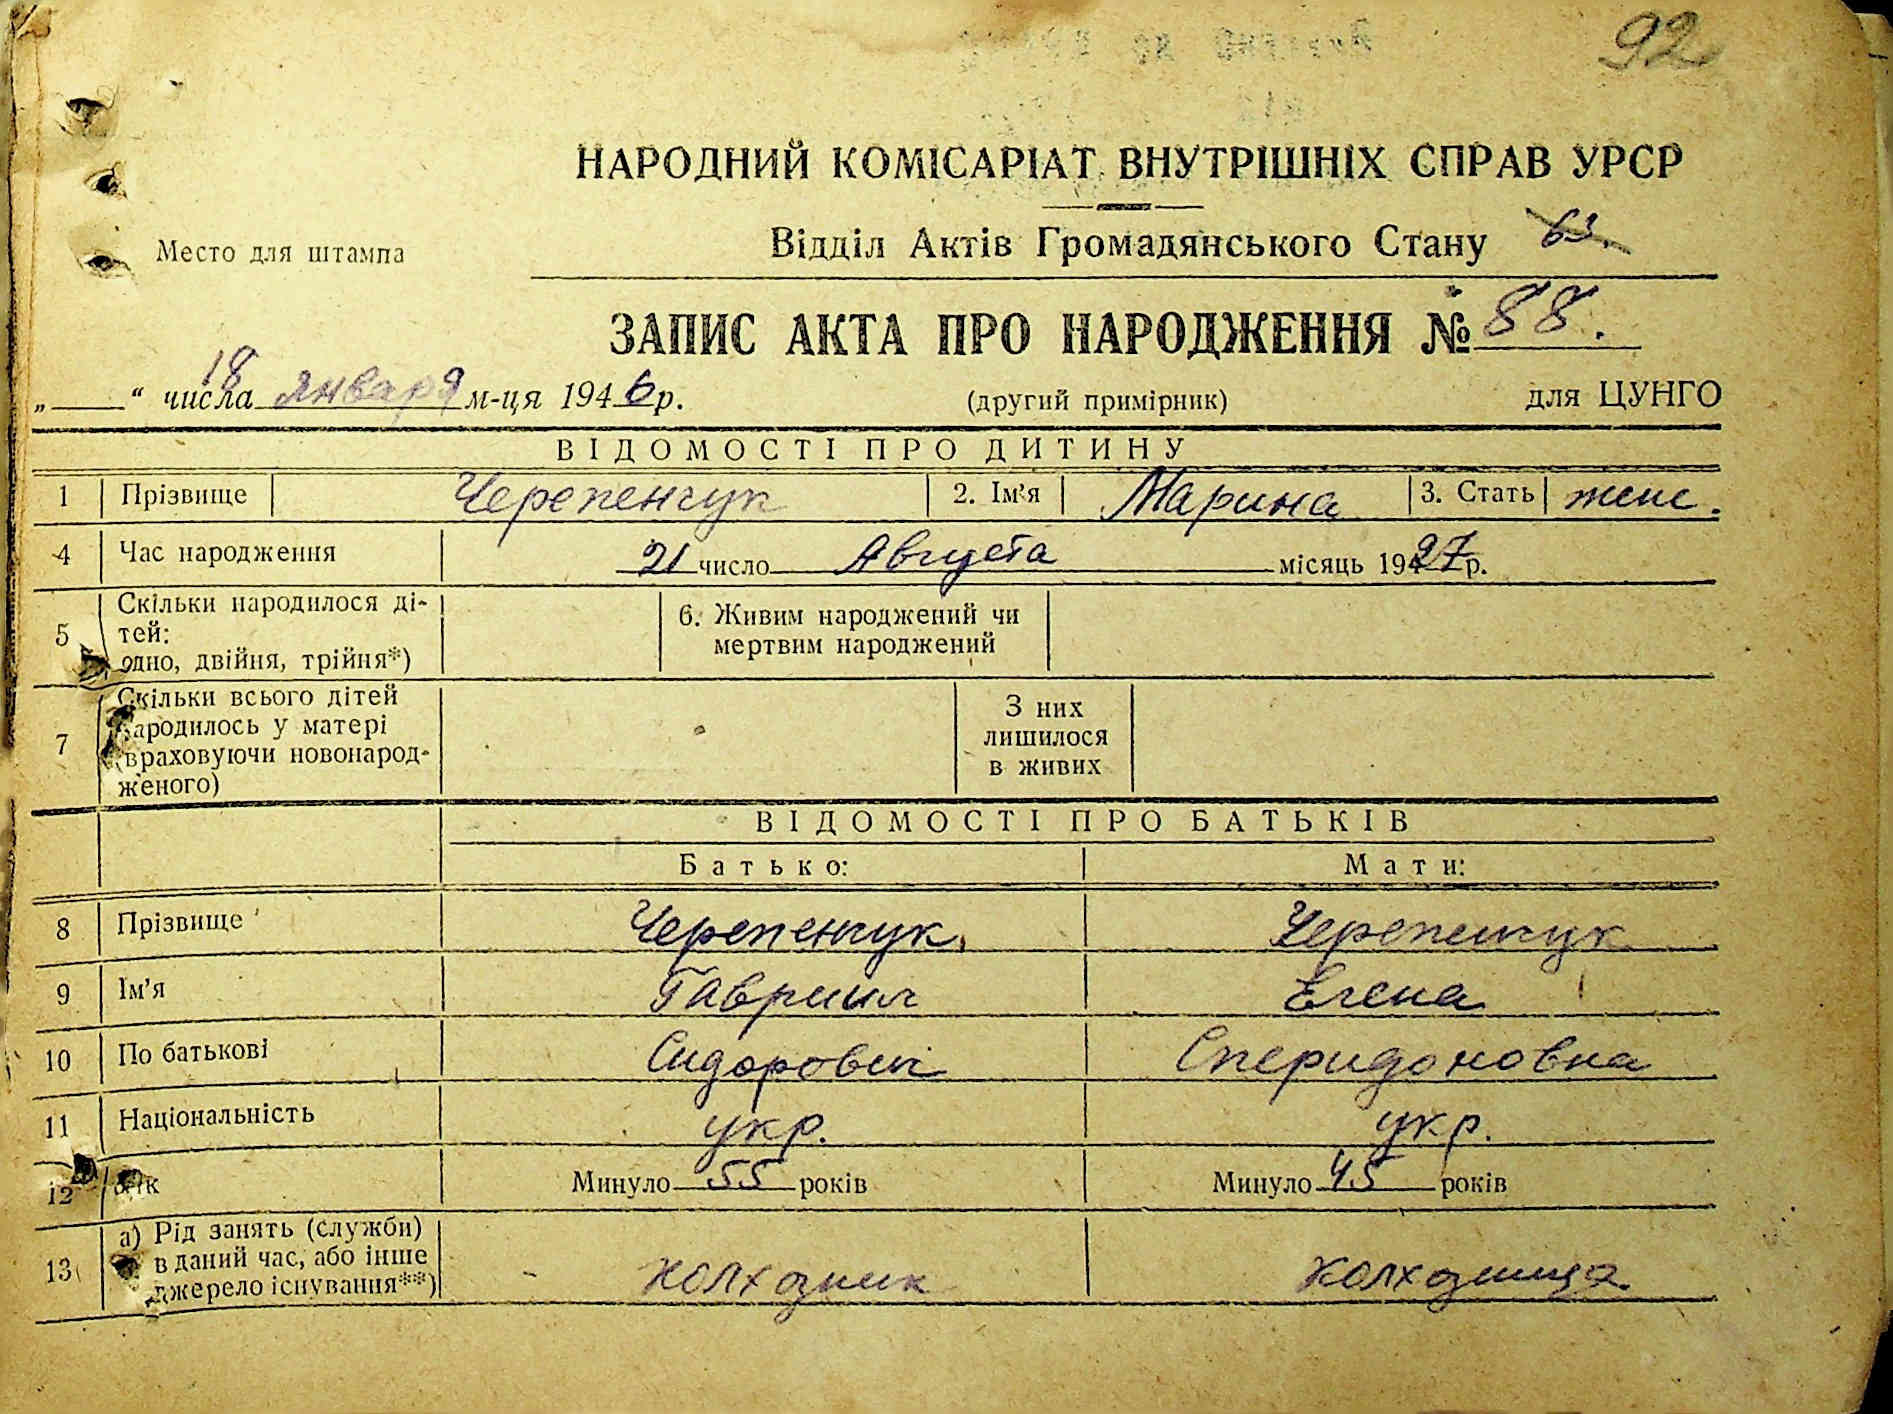 92
НАРОДНИЙ КОМІСАРІАТ ВНУТРІШНІХ СПРАВ УРСР
Место для штампа
Відділ Актів Громадянського Стану 63.
ЗАПИС АКТА ПРО НАРОДЖЕННЯ № 88.
„ “ 18 числа января м-ця 1946 р. (другий примірник) для ЦУНГО
ВІДОМОСТІ ПРО ДИТИНУ
1 Прізвище Черепенчук 2. Ім’я Марина 3. Стать женс.
4 Час народження 21 число Августа місяць 1927 р.
5 Скільки народилося ді-
тей:
одно, двійня, трійня*)
6. Живим народжений чи
мертвим народжений
7 Скільки всього дітей
народилось у матері
(враховуючи новонарод-
женого)
З них
лишилося
в живих
ВІДОМОСТІ ПРО БАТЬКІВ
Батько: Мати:
8 Прізвище Черепенчук Черепенчук
9 Ім’я Гавриил Елена
10 По батькові Сидорович Сперидоновна
11 Національність укр. укр.
12 Вік Минуло 55 років Минуло 45 років
13 а) Рід занять (служби)
в даний час, або інше
джерело існування**)
колхозник колхозница